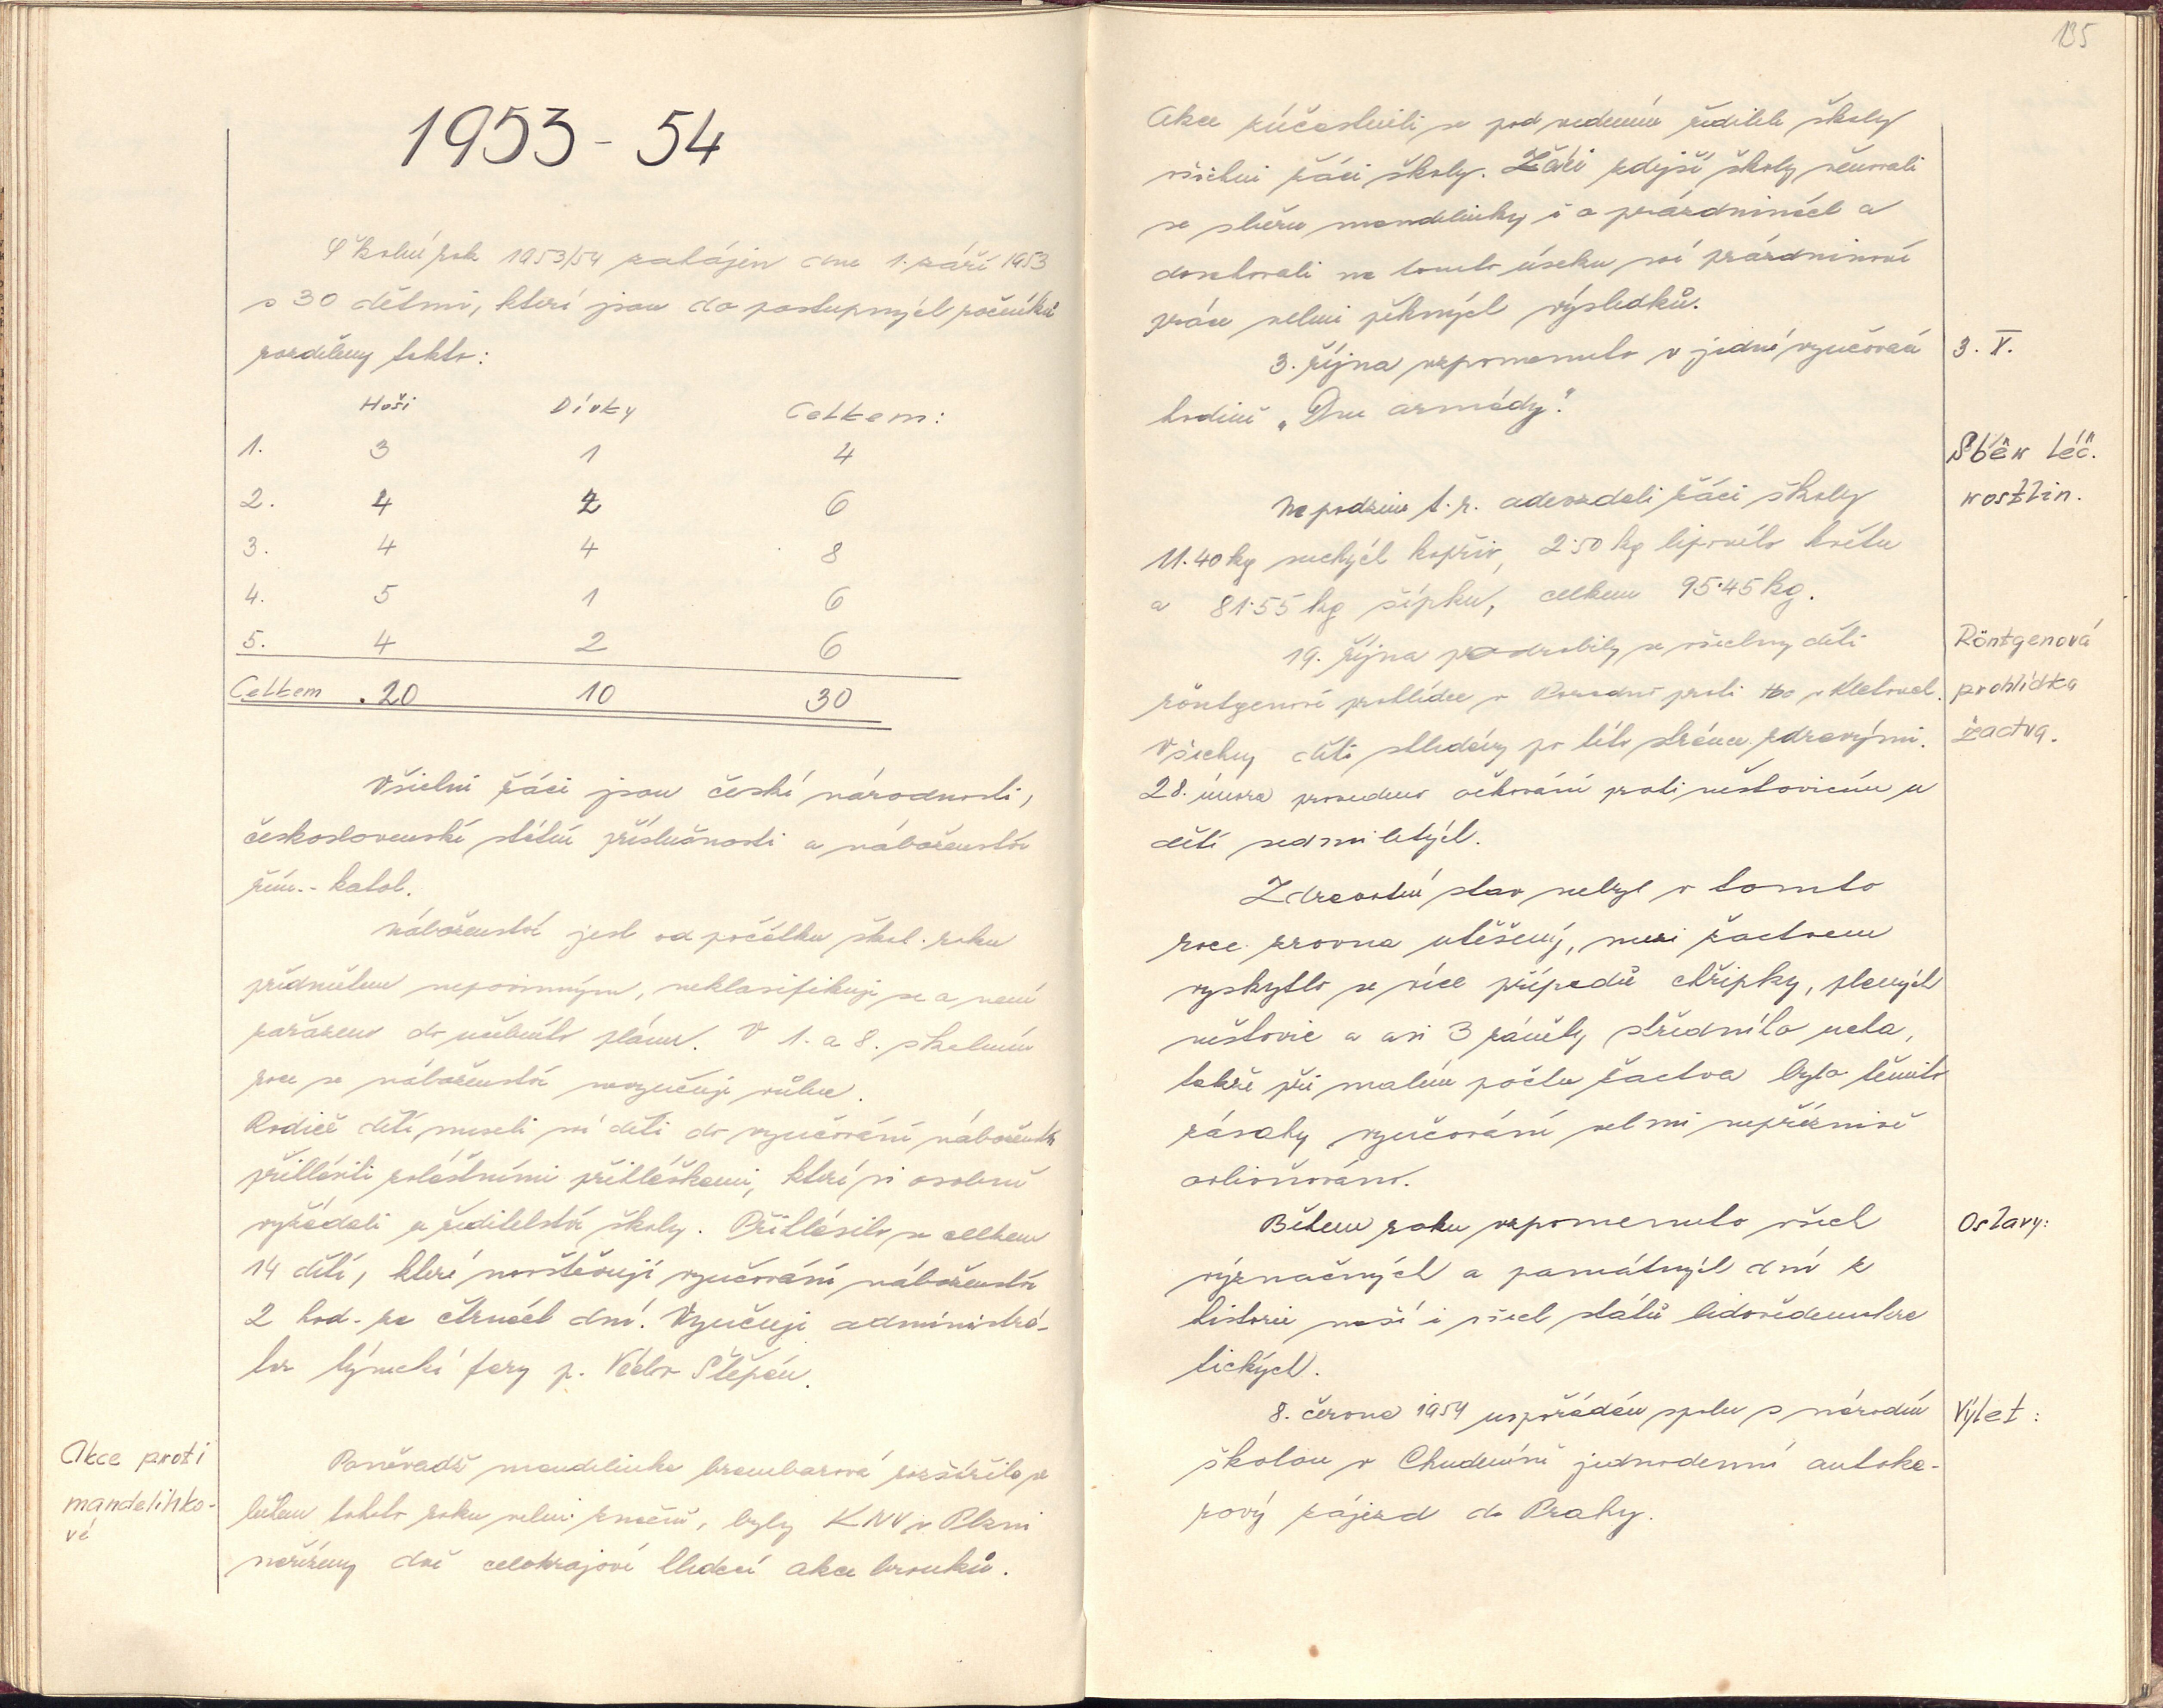 1953 - 54
Školní rok 1953/54 zahájen dne 1. září 1953
s 30 dětmi, které jsou do postupných ročníků
rozděleny takto:
Hoši Dívky Celkem:
1. 3 1 4
2. 4 2 6
3. 4 4 8
4. 5 1 6
5. 4 2 6
Celkem . 20 10 30
Všichni žáci jsou české národnosti,
československé státní příslušnosti a náboženství
řím.-katol.
Náboženství jest od počátku škol. roku
předmětem nepovinným, neklasifikuje se a není
zařazeno do učebního plánu. V 1. a 8. školním
roce se náboženství nevyučuje vůbec.
Rodiče dětí museli své děti do vyučování náboženství
přihlásiti zvláštními přihláškami, které si osobně
vyžádali u ředitelství školy. Přihlásilo se celkem
14 dětí, které navštěvují vyučování náboženství
2 hod. za čtrnáct dní. Vyučuje administrá-
tor týnecké fary p. Václav Štěpán.
Akce proti
mandelinko-
vé
Poněvadž mandelinka bramborová rozšířila se
během tohoto roku velmi značně, byly KNV v Plzni
nařízeny dvě celokrajové hledací akce brouků.
135
Akce zúčastnili se pod vedením ředitele školy
všichni žáci školy. Žáci zdejší školy věnovali
se sběru mandelinky i o prázdninách a
dosahovali na tomto úseku své prázdninové
práce velmi pěkných výsledků.
3. října vzpomenuto v jedné vyučovací
3. X.
hodině „Dne armády".
Sběr léč.
rostlin.
Na podzim t. r. odevzdali žáci školy
11.40 kg suchých kopřiv, 2.50 kg lipového květu
a 81.55 kg šípku, celkem 95.45 kg.
19. října podrobily se všechny děti
Röntgenová
prohlídka
žactva.
röntgenové prohlídce v Poradně proti tbc v Klatovech.
Všechny děti shledány po této stránce zdravými.
28. února provedeno očkování proti neštovicím u
dětí sedmiletých.
Zdravotní stav nebyl v tomto
roce zrovna utěšený, mezi žactvem
vyskytlo se více případů chřipky, planých
neštovic a asi 3 záněty středního ucha,
takže při malém počtu žactva bylo těmito
zásahy vyučování velmi nepříznivě
ovlivňováno.
Během roku vzpomenuto všech
Oslavy:
význačných a památných dní z
historie naší i všech států lidovědemokra
tických.
8. června 1954 uspořádán spolu s národní
Výlet:
školou v Chudeníně jednodenní autoka-
rový zájezd do Prahy.